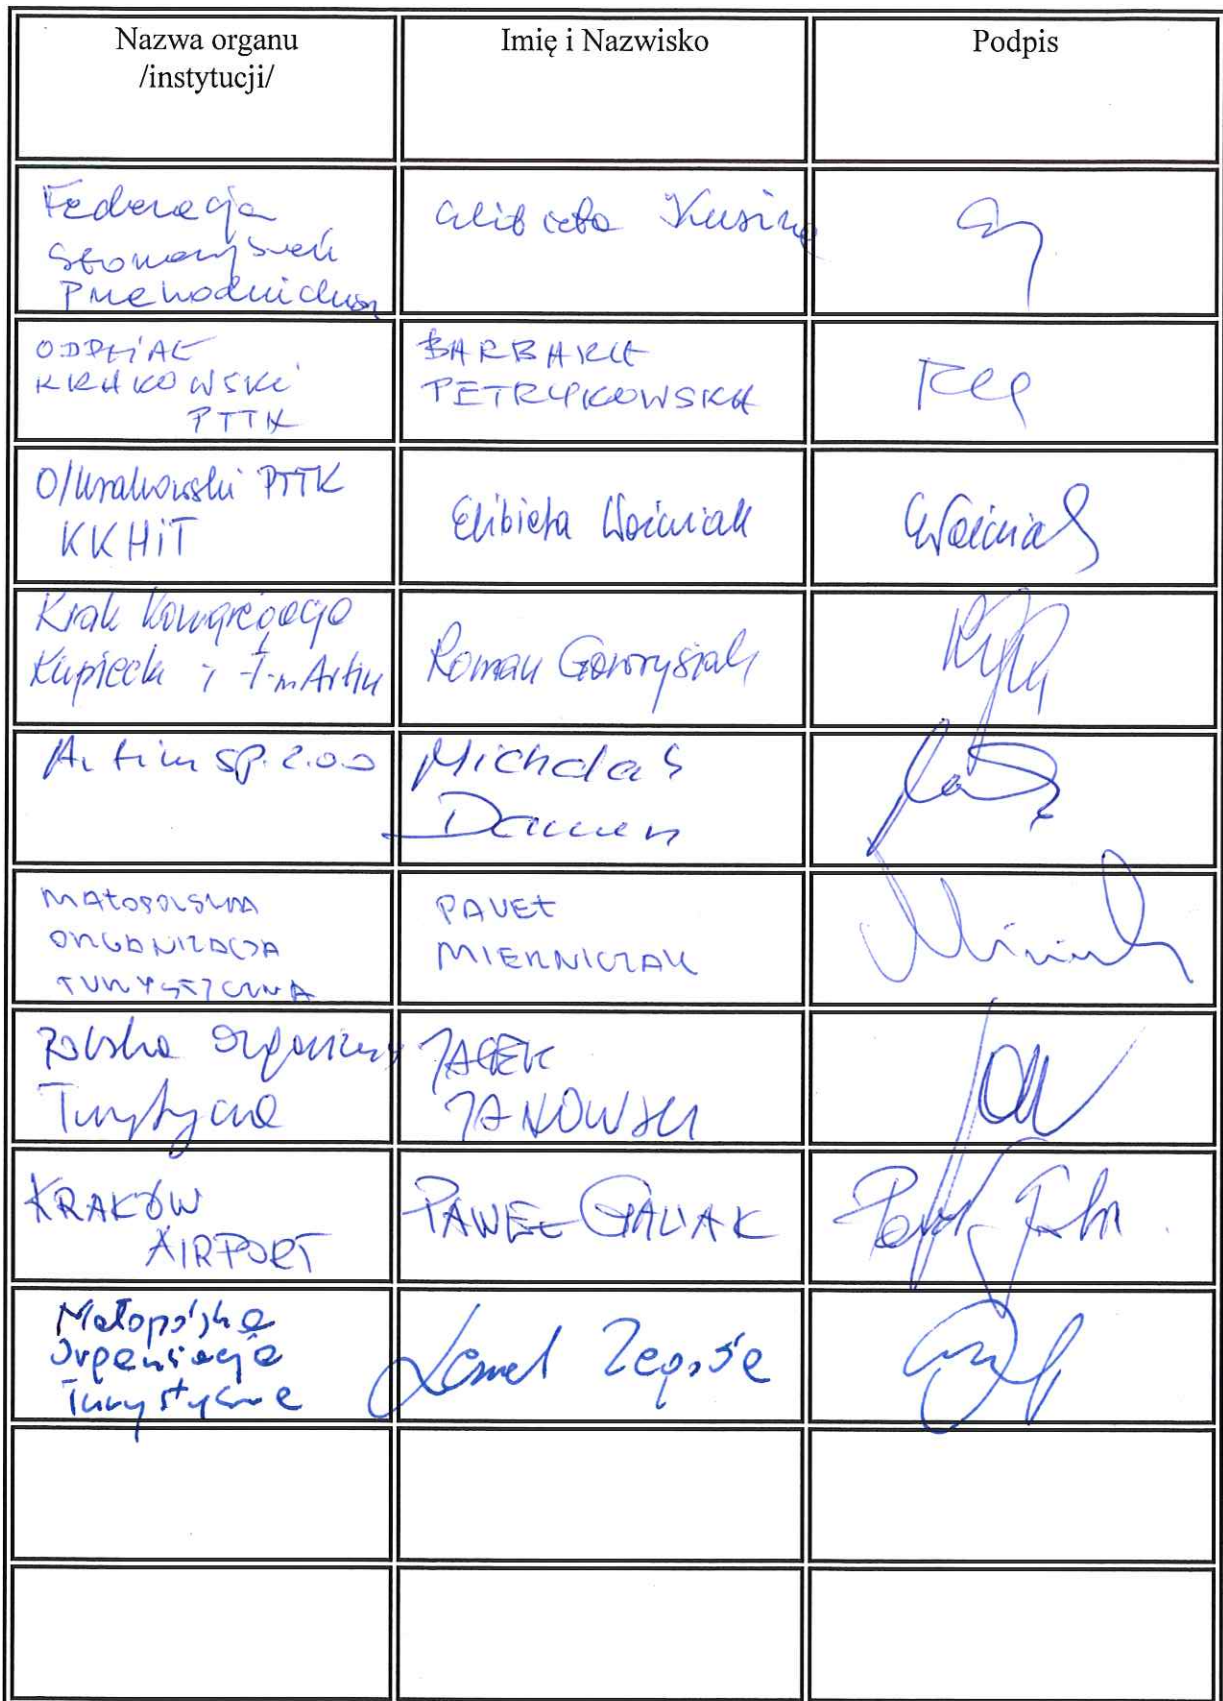 Nazwa organu
/instytucji/
Imię i Nazwisko
Podpis
Federacja
Stowarzyszeń
Przewodnickich
Elżbieta Kusina
ODDZIAŁ
KRAKOWSKI
PTTK
BARBARA
PETRYKOWSKA
O/Krakowski PTTK
KKHiT
Elżbieta Woźniak
EWoźniak
Krak Kongregacja
Kupiecka i
Roman Gawrysiak
Artim sp. z.o.o
Michalaś
Damian
MAŁOPOLSKA
ORGANIZACJA
TURYSTYCZNA
PAWEŁ
MIERNICZAK
Polska Organizacja
Turystyczna
JACEK
JANOWSKI
KRAKÓW
AIRPORT
PAWEŁ
Małopolska
Organizacja
Turystyczna